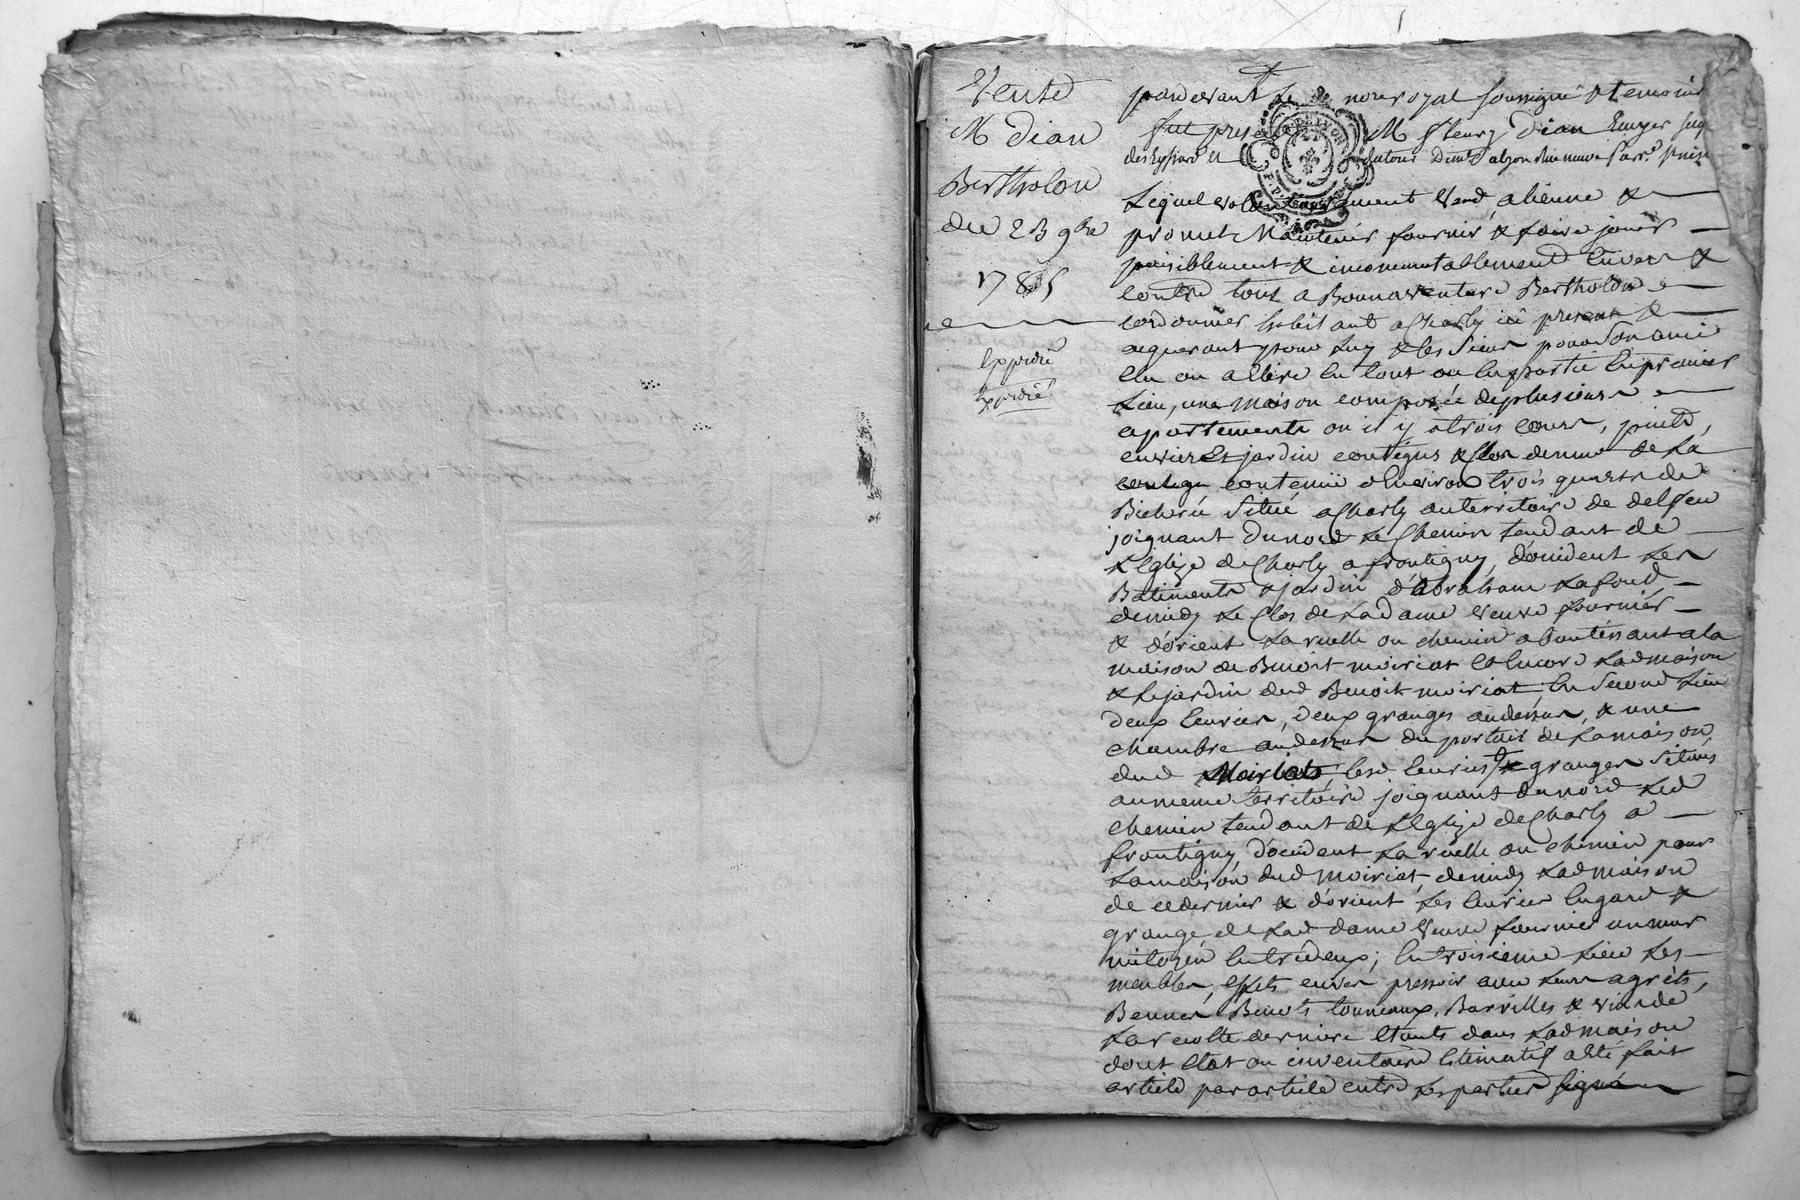 Vente
M Dian
Bertholon
du 23 9bre
1785
Expedié
Expedié
pardevant Le no.re royal soussigné & temoins
fut present M fleury Dian Ecuyer
Lequel volontairement vend, aliene &
promet Maintenir fournir & faire jouir
paisiblement & incommutablement Envers &
contre tous a Bonnaventure Bertholon
cordonnier habitant a Charly ici present &
aquerant pour Luy & les Siens pour Son ami
Elu ou a Elire En tout ou En partie En premier
Lieu, une maison composée de plusieurs
apartements ou il y a trois cours, puits,
cuvier Et jardin contigus & Clos de murs de La
contenue d'Environ trois quarts de
Bicherée Situé a Charly au territoire de
joignant du nord Le Chemin tendant de
L'Eglize de Charly a frontigny, d'occident Les
Batiments & jardin d'Abraham Lafond
de midy Le Clos de La dame veuve fournier
& d'orient La ruelle ou chemin aboutissant a la
maison de Benoit moiriat Et Encore Lad maison
& Le jardin dud Benoit moiriat; En Second Lieu
deux Ecuries, deux granges au dessus, & une
chambre au dessus du portail de La maison
dud Moiriat, lesd Ecuries & granges Situés
au meme territoire joignant du nord Led
chemin tendant de L'Eglize de Charly a
frontigny, d'occident La ruelle ou chemin pour
La maison dud moiriat, de midy Lad maison
de ce dernier & d'orient Les Ecuries hugard &
grange de Lad dame veuve fournier un mur
mitoyen Entre deux; En troisieme Lieu Les
meubles, Effets cuves pressoir avec Leurs agrès,
Bennes, Benots tonneaux, Barrilles & vin de
La recolte derniere Etants dans Lad maison
dont Etat ou inventaire Estimatif a Eté fait
article par article entre Les parties signé